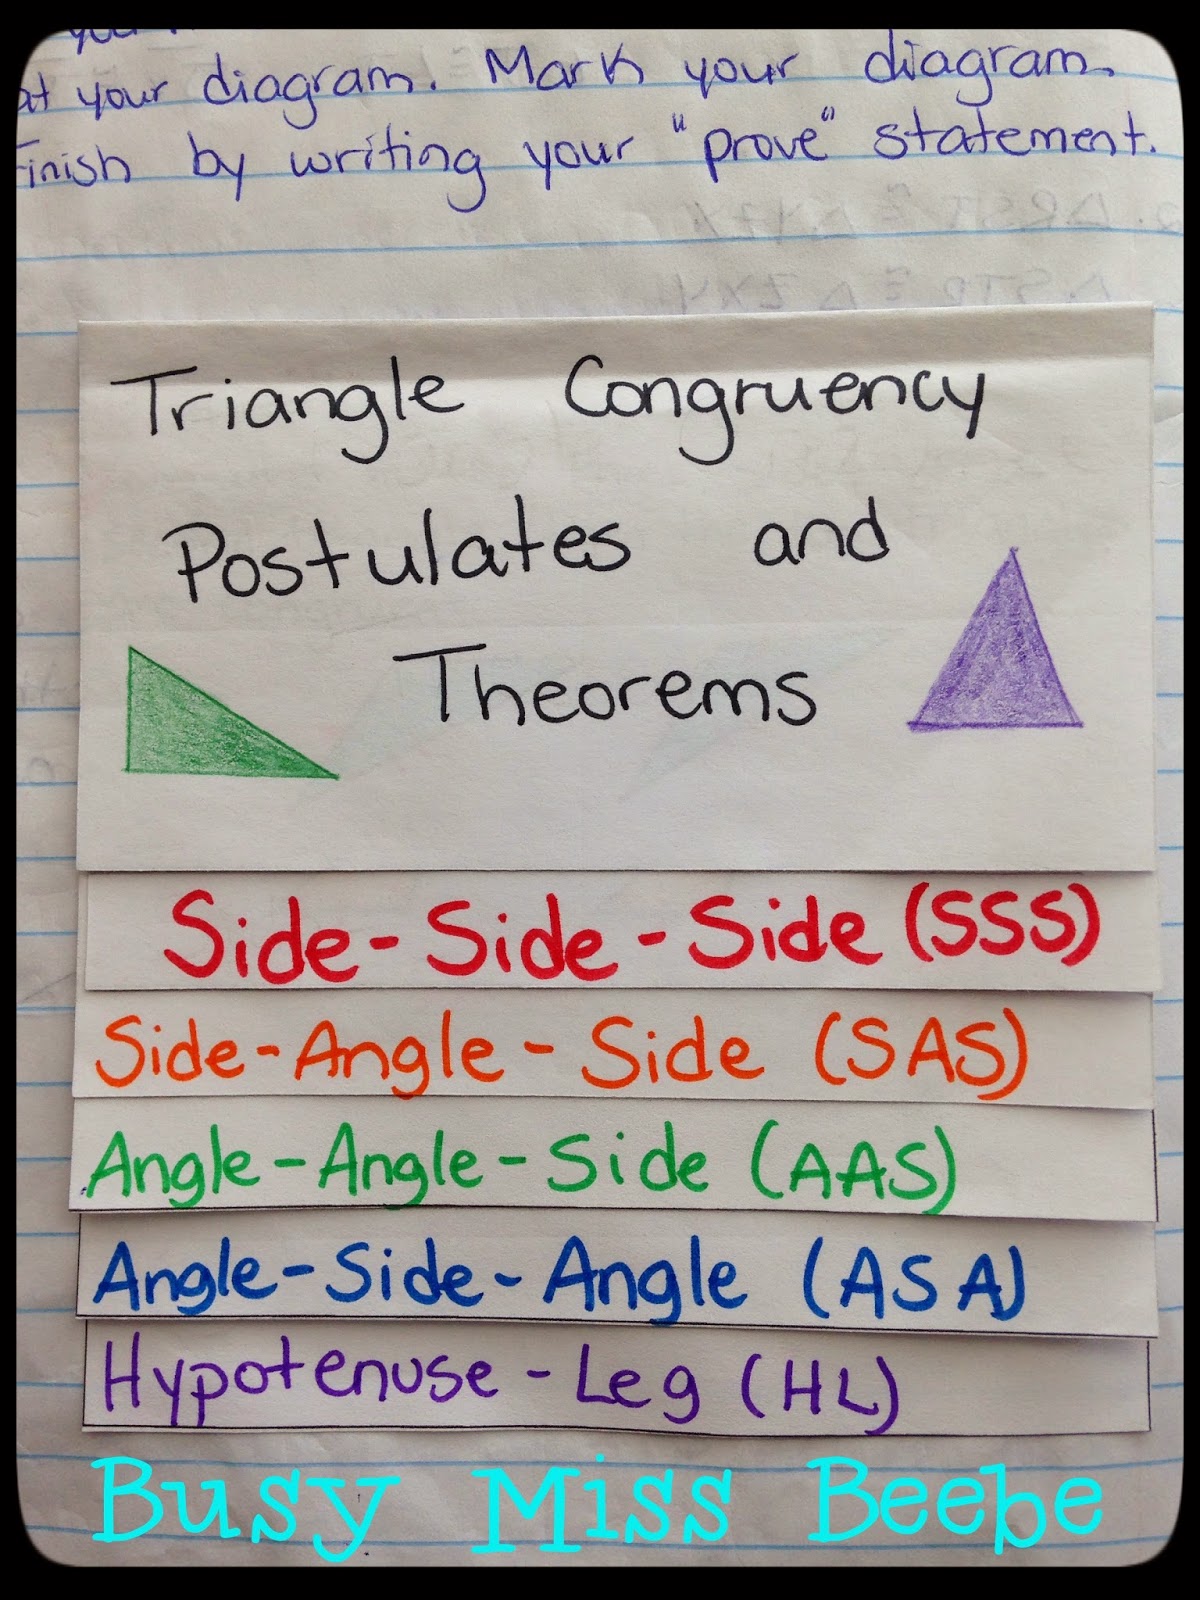 at your diagram. Mark your diagram.
Finish by writing your "prove" statement.
Triangle Congruency
Postulates and
Theorems
Side-Side-Side (SSS)
Side-Angle-Side (SAS)
Angle-Angle-Side (AAS)
Angle-Side-Angle (ASA)
Hypotenuse-Leg (HL)
Busy Miss Beebe